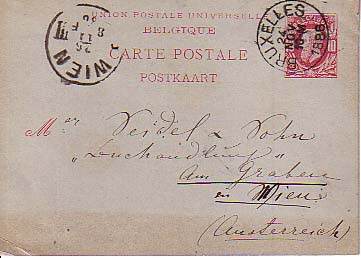 UNION POSTALE UNIVERSELLE
BELGIQUE
CARTE POSTALE
POSTKAART
WIEN
BRUXELLES
NOV
10
Mrs Seidel & Sohn
„Buchhandlung"
Am Graben
en Wien
(Austerreich)